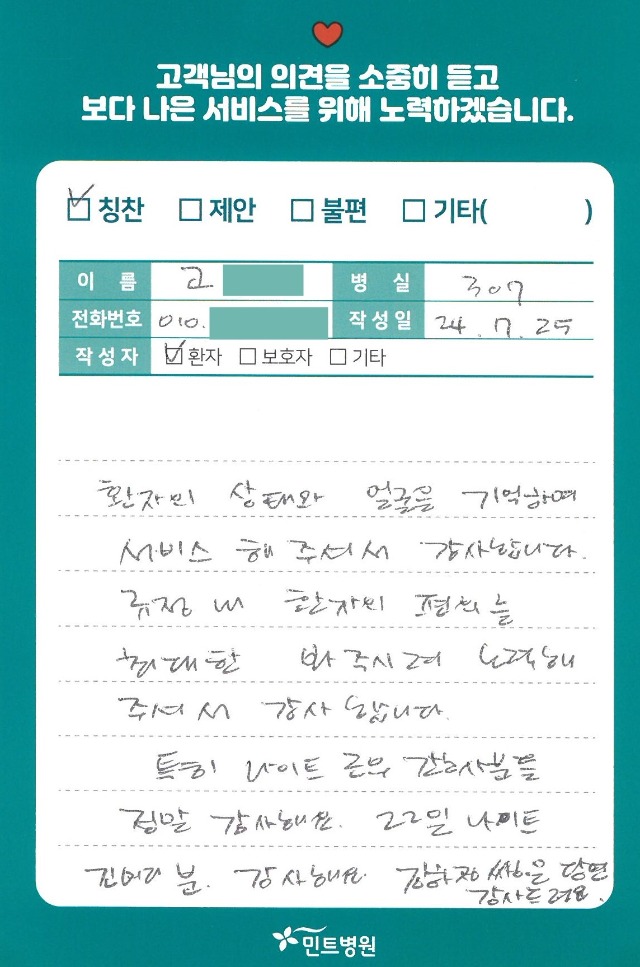 고객님의 의견을 소중히 듣고
보다 나은 서비스를 위해 노력하겠습니다.
칭찬 제안 불편 기타( )
이 름 고 병 실 307
전화번호 010. 작성일 24.7.25
작성자 환자 보호자 기타
환자의 상태와 얼굴을 기억하며
서비스 해 주셔서 감사합니다.
규정 내 환자의 편의를
최대한 봐주시려 노력해
주셔서 감사합니다.
특히 나이트 근무 간호사분들
정말 감사해요. 22일 나이트
분. 감사해요. 당연
감사드려요.
민트병원